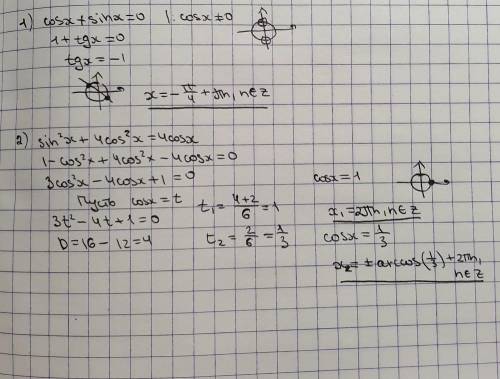 1) cosx + sinx = 0 | : cosx ≠ 0
1 + tgx = 0
tgx = -1
x = -π/4 + πn, n∈z
2) sin²x + 4cos²x = 4cosx
1 - cos²x + 4cos²x - 4cosx = 0
3cos²x - 4cosx + 1 = 0
Пусть cosx = t
3t² - 4t + 1 = 0
D = 16 - 12 = 4
t₁ = (4+2)/6 = 1
t₂ = 2/6 = 1/3
cosx = 1
x₁ = 2πn, n∈z
cosx = 1/3
x₂ = ± arccos(1/3) + 2πn,
n∈z